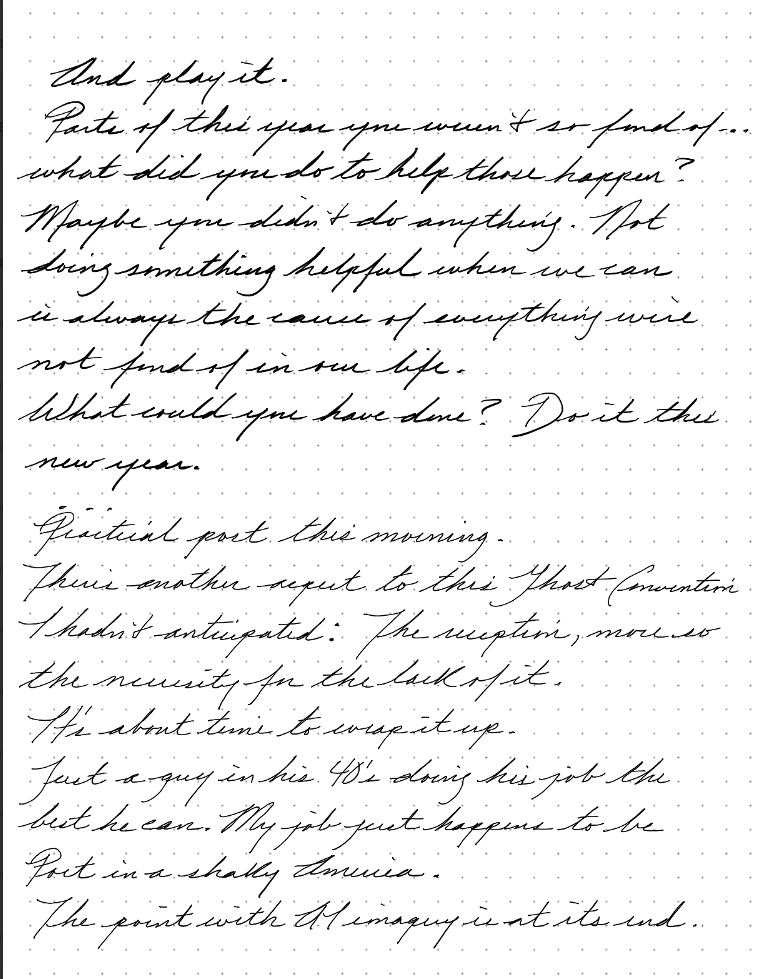 And play it.
Parts of this year you weren't so fond of...
what did you do to help those happen?
Maybe you didn't do anything. Not
doing something helpful when we can
is always the cause of everything we're
not fond of in our life.
What could you have done? Do it this
new year.
post this morning.
There's another aspect to this Ghost Convention
I hadn't anticipated: The reception, more so
the necessity for the lack of it.
It's about time to wrap it up.
Just a guy in his 40's doing his job the
best he can. My job just happens to be
Poet in a shaky America.
The point with AI imagery is at its end.